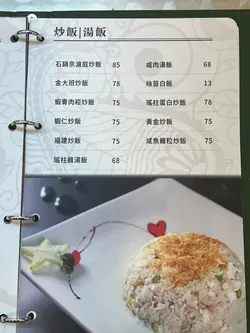 炒飯|湯飯
石鍋京滬庭炒飯 85
金大班炒飯 78
蝦膏肉崧炒飯 75
蝦仁炒飯 75
福建炒飯 75
瑤柱雞湯飯 68
咸肉湯飯 68
絲苗白飯 13
瑤柱蛋白炒飯 78
黃金炒飯 75
咸魚雞粒炒飯 75